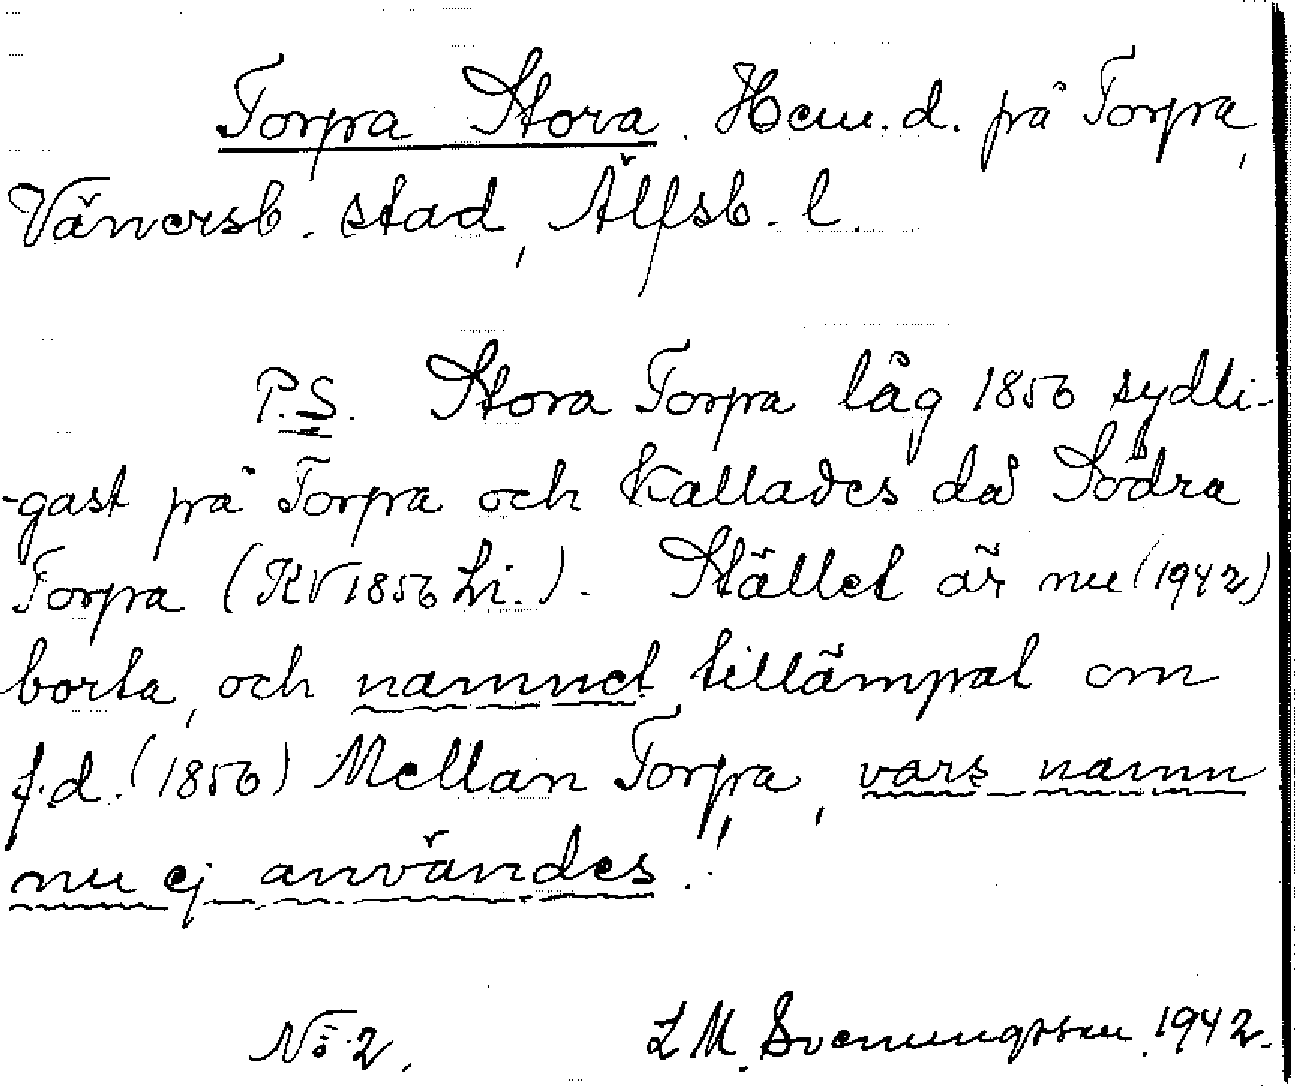 Torpa Stora. Hem.d. på Torpa,
Vänersb. stad, Älfsb. l.
P.S. Stora Torpa låg 1856 sydli-
-gast på Torpa och kallades då Södra
Torpa (KV 1856 Li.). Stället är nu (1942)
borta, och namnet tillämpat om
f.d. (1856) Mellan Torpa, vars namn
nu ej användes.
No 2. L M. Svenungsson 1942.